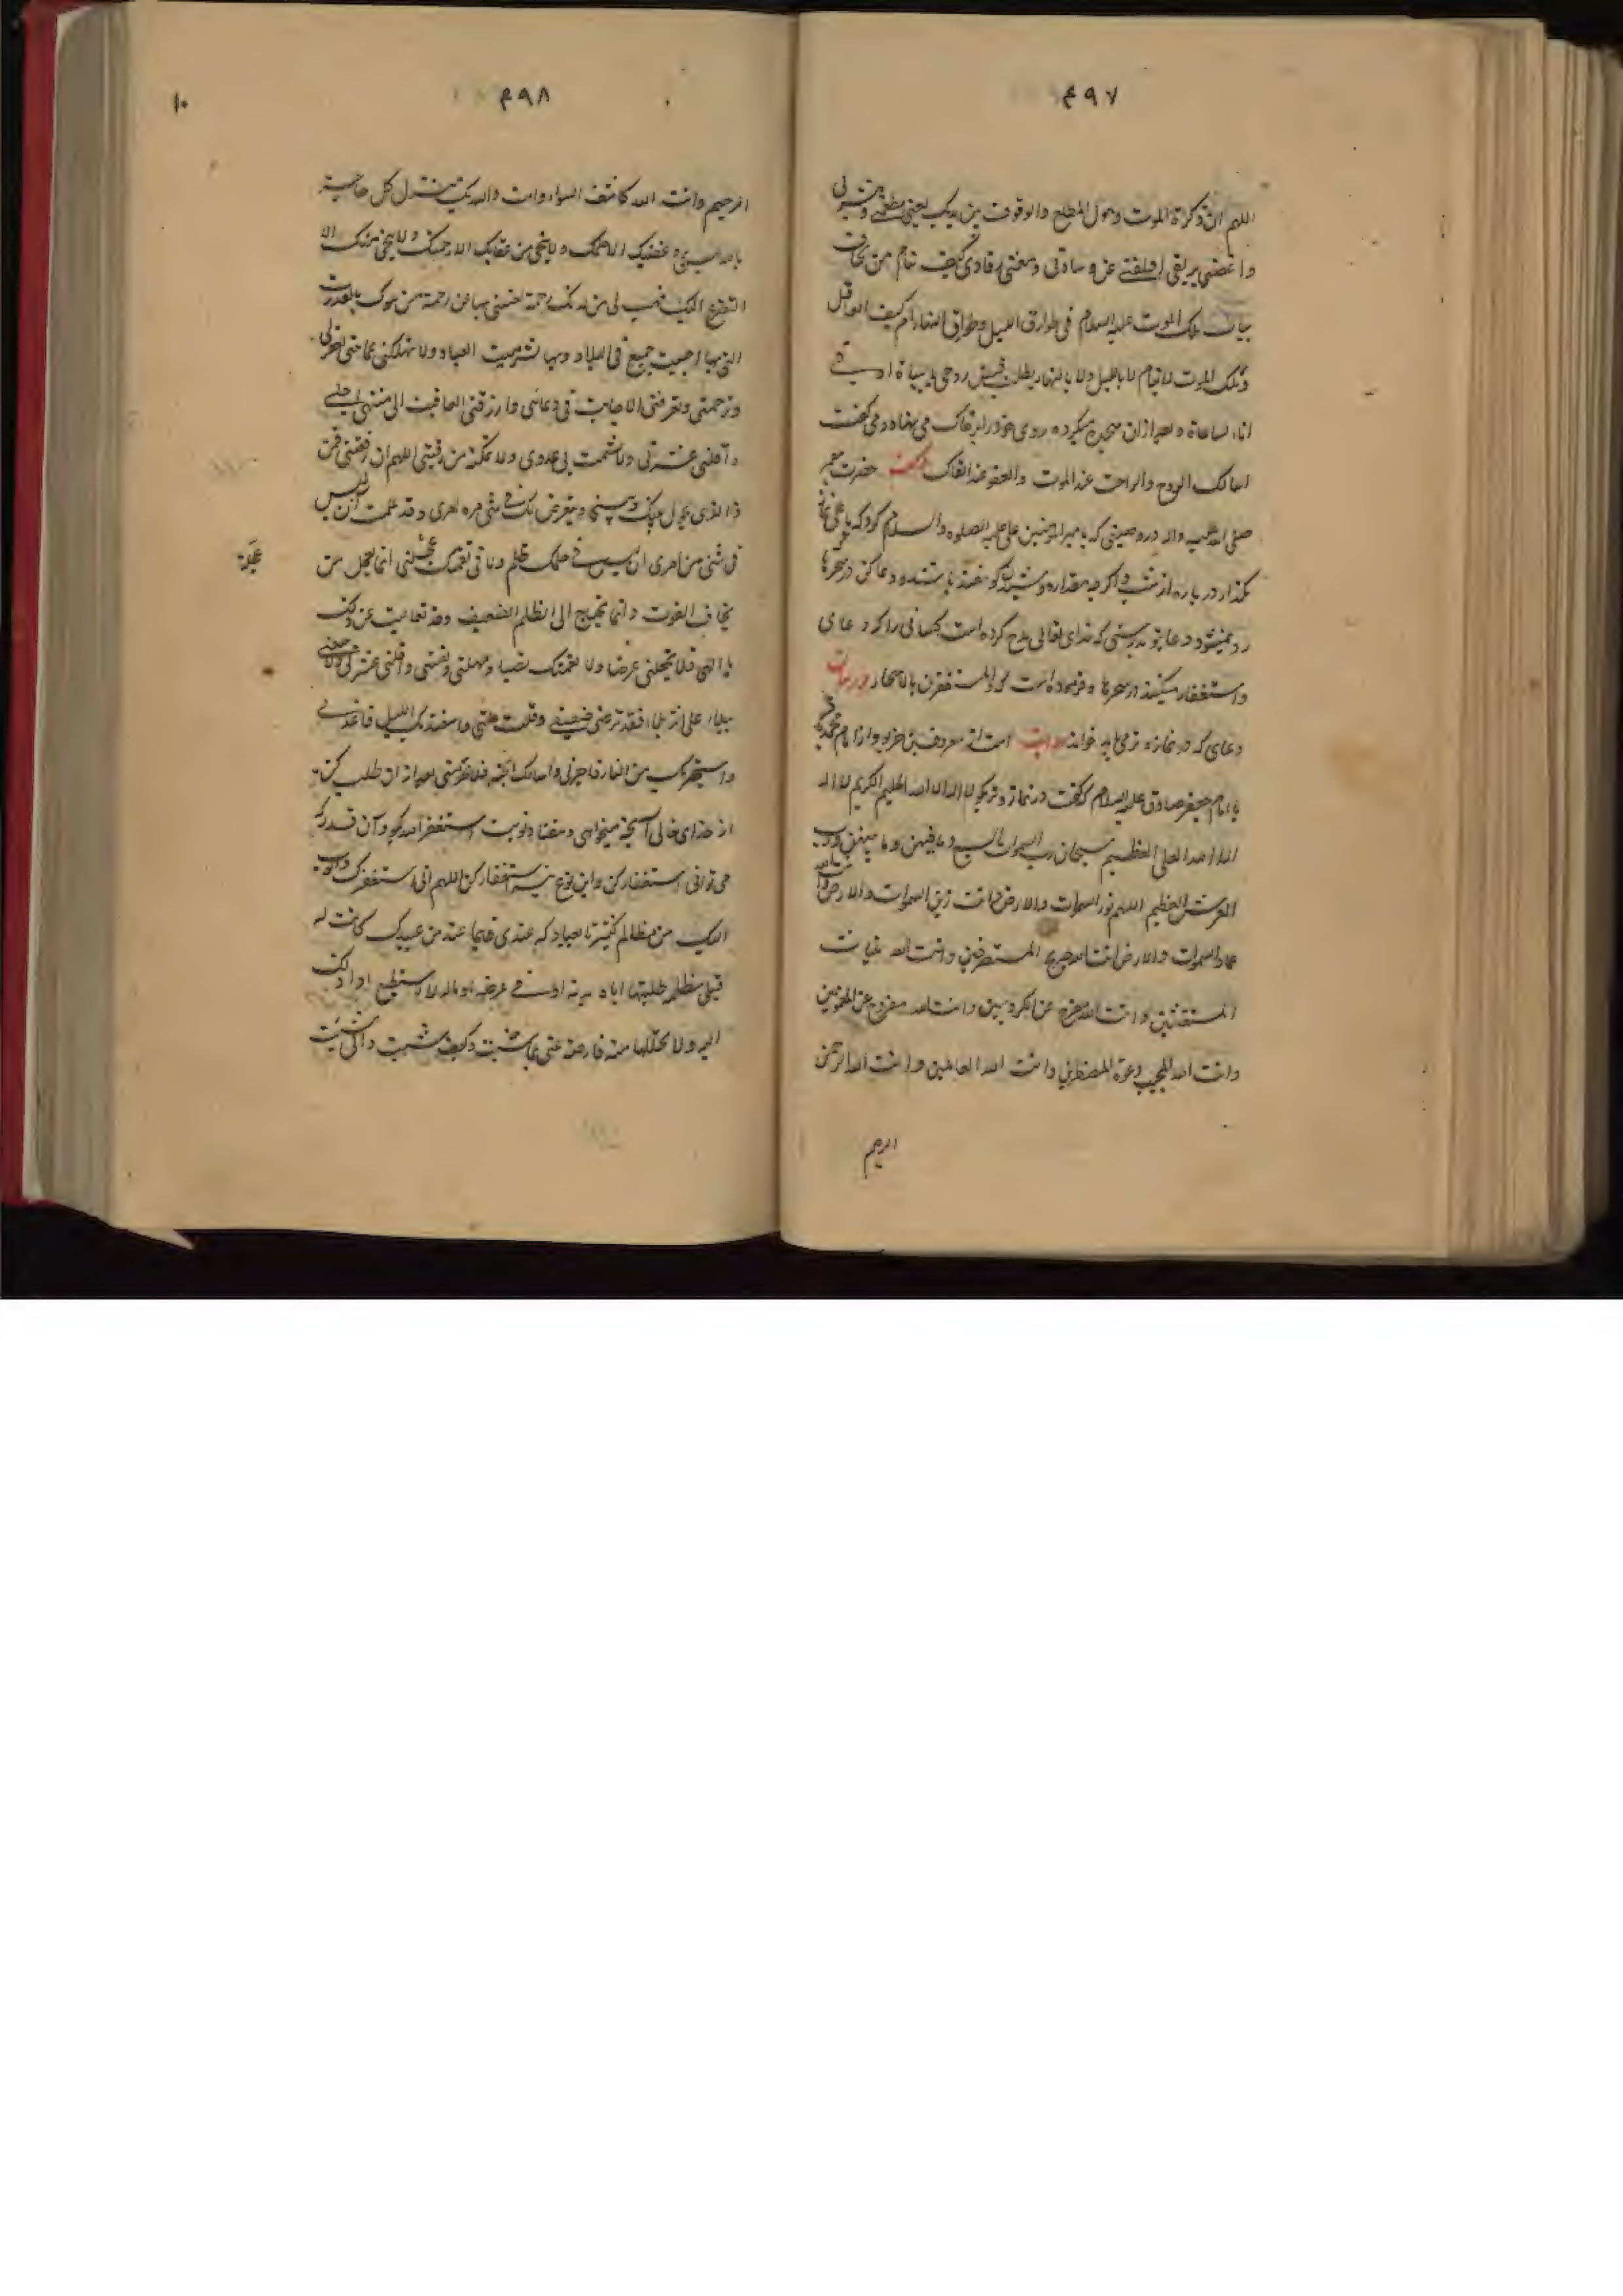 ۴۹۷
اللهم ان ذکرة الموت وهول المطلع والوقوف بین یدیک یعنی مطعمی ومشربی
واغصنی بریقی اقلقنی عن وسادتی ومعنی رقادی کیف ینام من یخاف
بیات ملک الموت علیه السلام فی طوارق اللیل وطوارق النهار ام کیف العاقل
وملک الموت لا ینام لا باللیل ولا بالنهار یطلب قبض روحی بالبیاة او فی
اناء الساعاة وبعد ازان سجده میکرده روی خود را بر خاک می نهاد و می گفت
اسالک الروح والراحت عند الموت والعفو عند القاک حضرت پیغمبر
صلی الله علیه واله در وصیتی که بامیر المؤمنین علی علیه الصلوه والسلام کرد که یا علی نماز
بگذار در پاره از شب و اگر چه مقدار دوشیدن گوسفند باشد و دعا کن در سحرها
رد نمیشود دعا تو بدرستی که خدای تعالی مدح کرده است کسانی را که دعای
واستغفار میکنند در سحرها و فرموده است که والمستغفرین بالاسحار در بیان
دعای که در نماز وتر می باید خواند روایت است از معروف بن خربوذ از امام محمد باقر
یا امام جعفر صادق علیه السلام که گفت در نماز وتر بگو لا اله الا الله الحلیم الکریم لا اله
الا الله العلی العظیم سبحان رب السموات السبع وما فیهن وما بینهن ورب
العرش العظیم اللهم نور السموات والارض وانت زین السموات والارض وانت الله
عماد السموات والارض انت الله صریخ المستصرخین وانت الله غیاث
المستغیثین وانت الله مفرج عن المکروبین وانت الله مفروح عن المغمومین
وانت الله المجیب دعوة المضطرین وانت الله العالمین وانت الله الرحمن
الرحیم
۴۹۸
۱۰
الرحیم وانت الله کاشف السواء وانت والله بک ینزل کل حاجة
یا الله لیس یرد غضبک الا حلمک ولا ینجی من عقابک الا رحمتک ولا ینجی منک الا
التضرع الیک فهب لی من لدنک رحمة تغننی بها عن رحمة من سواک بالقدرت
التی بها احییت جمیع فی البلاد وبها تنشر میت العباد ولا تهلکنی غما حتی تغفر لی
وترحمنی وتعرفنی الاجابت فی دعائی وارزقنی العافیت الی منتهی اجلی
واقلنی عثرتی ولا تشمت بی عدوی ولا تمکنه من رقبتی اللهم ان رفعتنی فمن
ذا الذی یحول بینک وبینی او یتعرض لک فی شی من امری وقد علمت ان لیس
فی شی من امری ان لیس فی حکمک ظلم ولا فی نقمتک عجلتی انما یعجل من
عجلة
یخاف الفوت وانما یحتاج الی الظلم الضعیف وقد تعالیت عن ذلک
یا الهی فلا تجعلنی غرضا ولا لنقمتک نصبا ومهلنی ونفسنی واقلنی عثرتی ولا تتبعنی
ببلاء علی اثر بلاء فقد تری ضعفی وقلت حیلتی واستعذ بک اللیل فاعذنی
واستجیر بک من النار فاجرنی واسالک الجنة فلا تحرمنی بعد از ان طلب کن
از خدای تعالی آنچه میخواهی وهفتاد نوبت استغفر الله بگو وآن قدر که
می توانی استغفار کن واین نوع نیز استغفار کن اللهم انی استغفرک واتوب
الیک من مظالم کثیرة لعبادک عندی فایما عبد من عبیدک کانت له
قبلی مظلمه ظلمتها ایاه فی بدنه او فی عرضه او ماله لا استطیع اداء ذلک
الیه ولا تحللها منه فارضه عنی بما شئت وکیف شئت وانی شئت